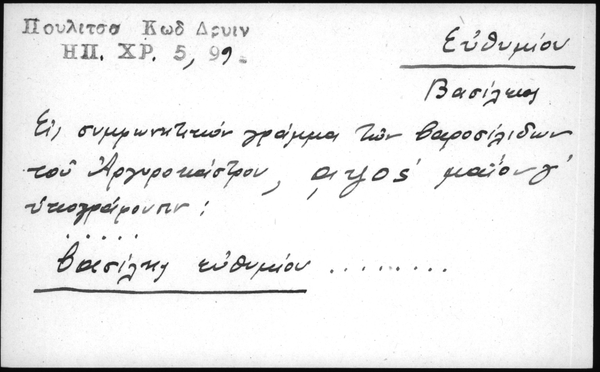 Πουλιτσα Κωδ Δρυιν
ΗΠ. ΧΡ. 5, 99.
Εὐθυμίου
Βασίλης
Εἰς συμφωνητικόν γράμμα τῶν βαροσιλιδων
τοῦ Ἀργυροκάστρου, αψος΄ μαΐου γ΄
ὑπογράφουν :
. . . . . .
βασίλης εὐθυμίου . . . . . . . .